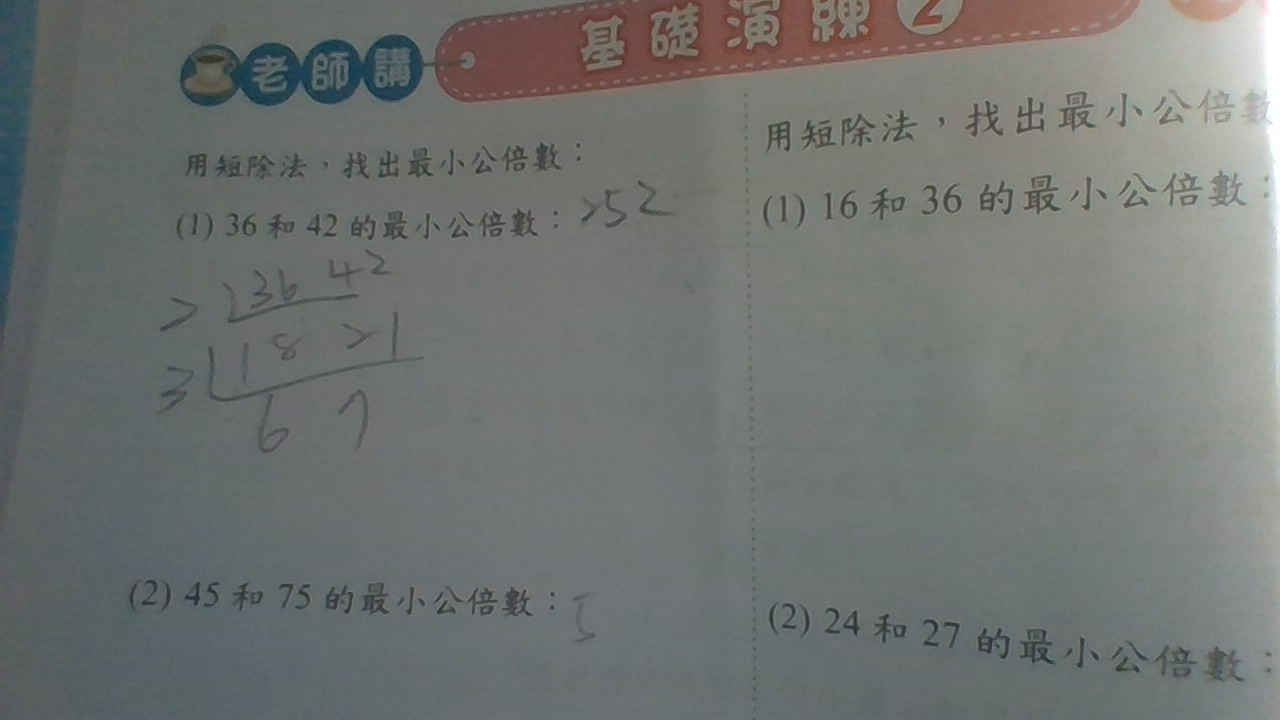 老師講
基礎演練 2
用短除法,找出最小公倍數:
(1) 36 和 42 的最小公倍數: 252
2 36 42
3 18 21
6 7
(2) 45 和 75 的最小公倍數:
用短除法,找出最小公倍數
(1) 16 和 36 的最小公倍數:
(2) 24 和 27 的最小公倍數: